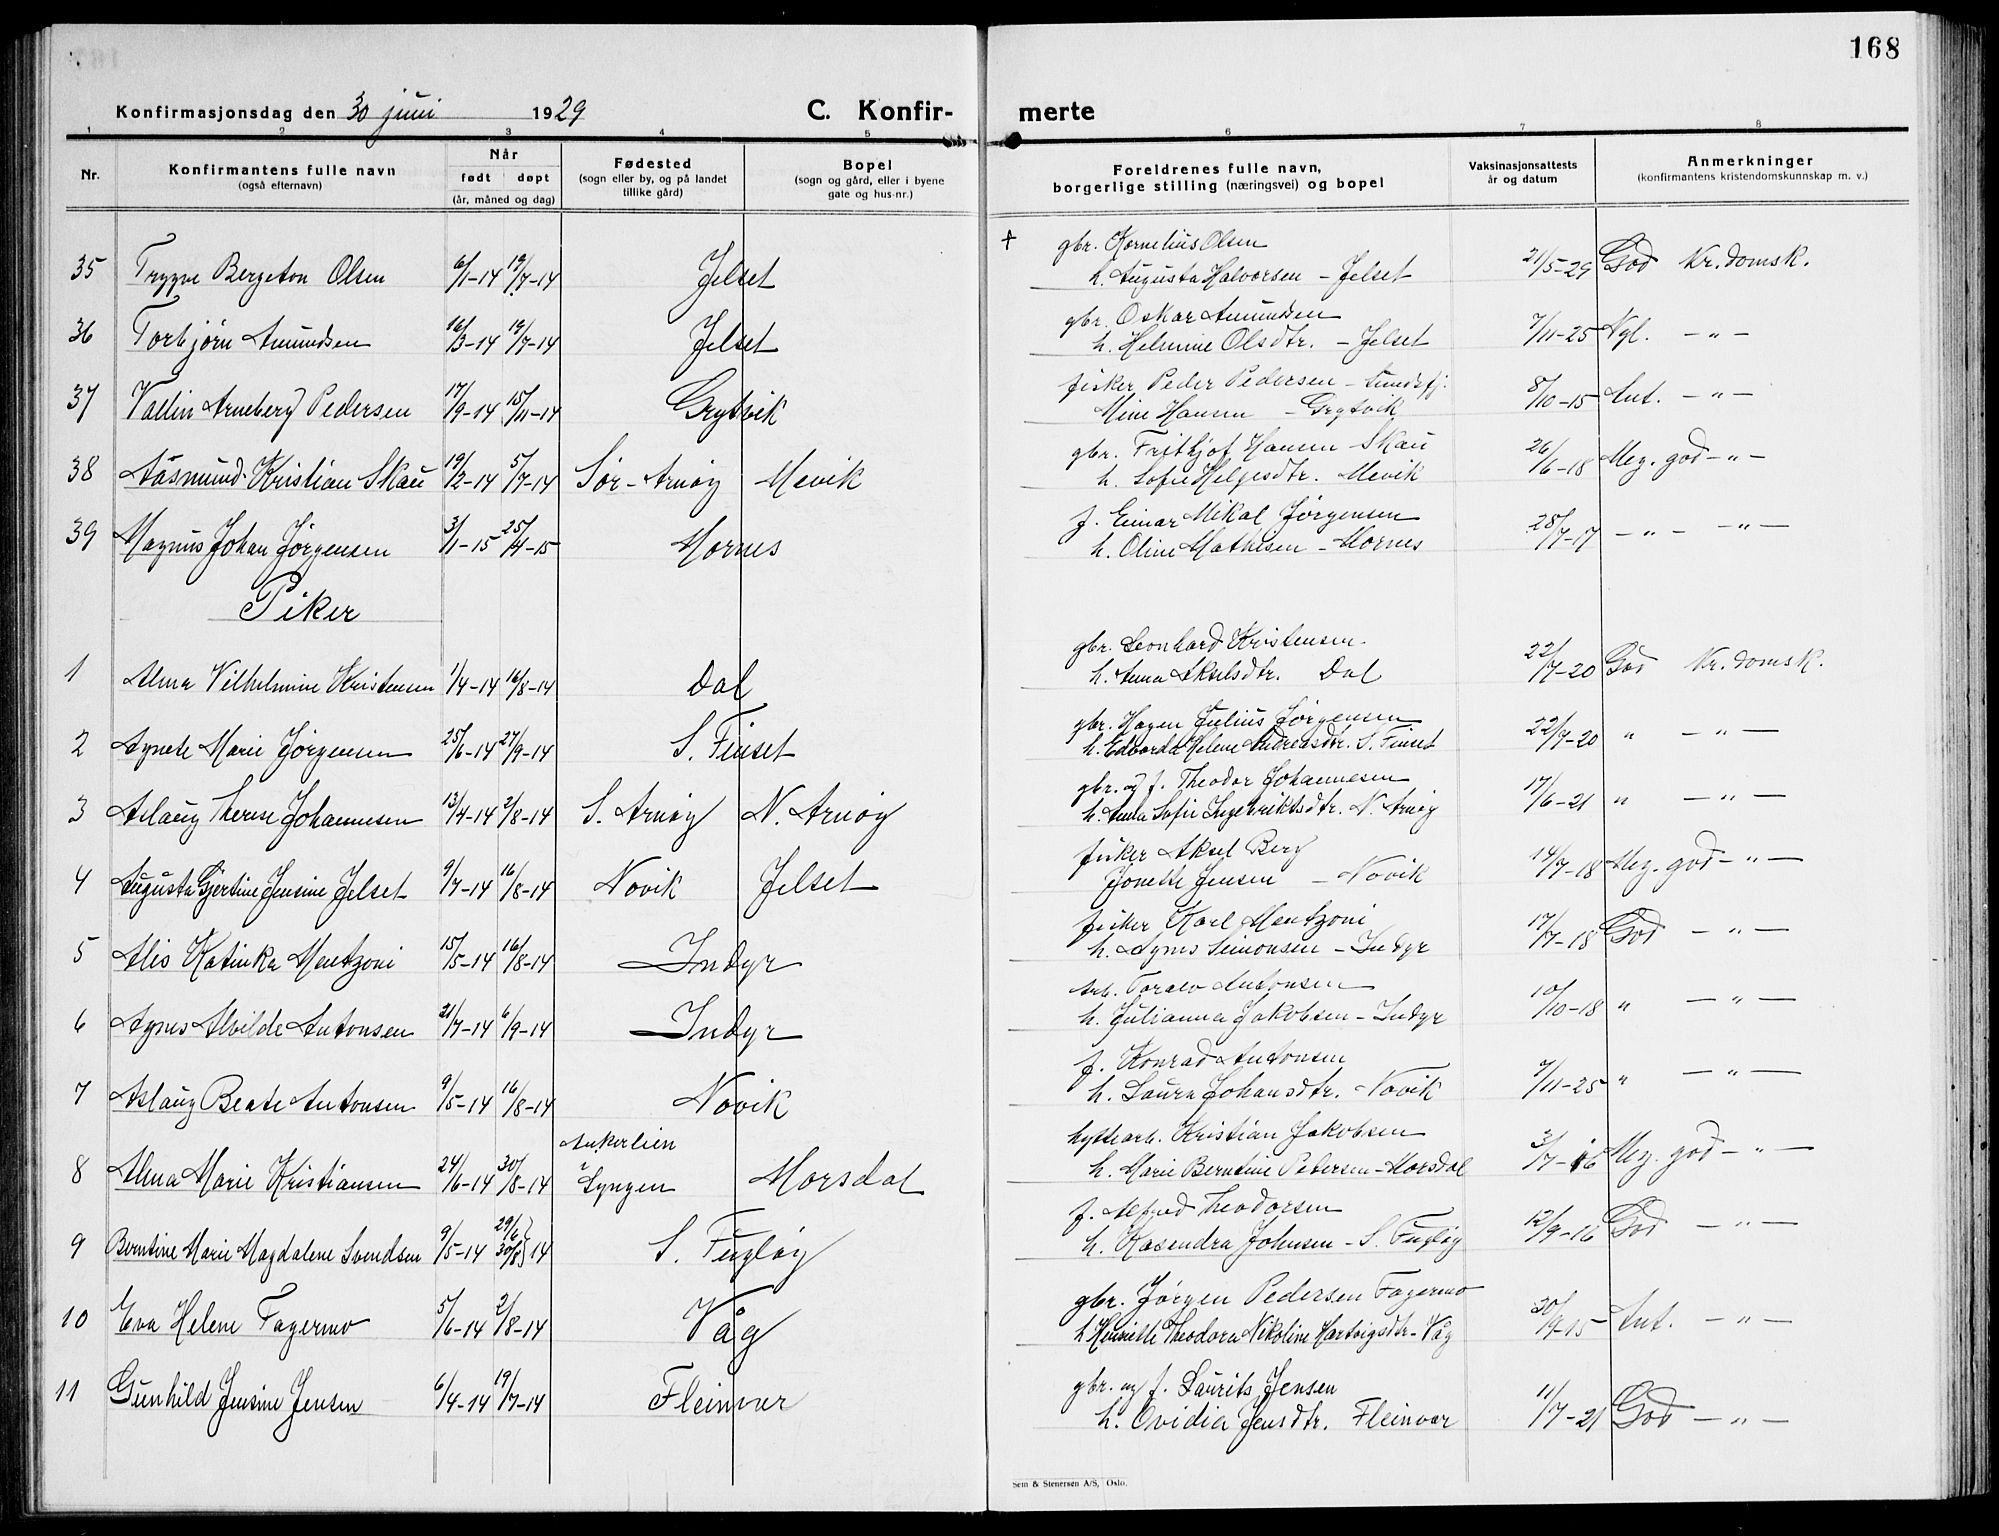 168
Konfirmasjonsdag den 30 juni 1929 C. Konfir- merte
1 2 3 4 5 6 7 8
Nr. Konfirmantens fulle navn (også efternavn) Når født døpt (år, måned og dag) Fødested (sogn eller by, og på landet tillike gård) Bopel (sogn og gård, eller i byene gate og hus-nr.) Foreldrenes fulle navn, borgerlige stilling (næringsvei) og bopel Vaksinasjonsattests år og datum Anmerkninger (konfirmantens kristendomskunnskap m. v.)
+ gbr. Kornelius Olsen
35 Trygve Bergeton Olsen 6/1-14 19/7-14 Jelset h. Augusta Halvorsen - Jelset 21/5-29 God Kr. domsk.
gbr. Oskar Amundsen
36 Torbjørn Amundsen 16/3-14 19/7-14 Jelset h. Helmine Olsdtr. - Jelset 7/11-25 Ngl. -"-
fisker Peder Pedersen - Sundsfj.
37 Vallin Arneberg Pedersen 17/9-14 15/11-14 Grytvik Mine Hansen - Grytvik 8/10-15 Ant. -"-
gbr. Frithjof Hansen Skau
38 Aasmund Kristian Skau 19/2-14 5/7-14 Sør-Arnøy Mevik h. Sofie Helgesdtr. Mevik 26/6-18 Meg. god -"-
f. Einar Mikal Jørgensen
39 Magnus Johan Jørgensen 3/1-15 25/4-15 Mornes h. Oline Mathisen - Mornes 28/7-17 -"- -"-
Piker
gbr. Leonhard Kristensen
1 Alma Vilhelmine Kristensen 1/4-14 16/8-14 Dal h. Anna Akselsdtr. Dal 22/7-20 God Kr. domsk.
gbr. Hagen Julius Jørgensen
2 Agnete Marie Jørgensen 25/6-14 27/9-14 S. Finset h. Edvarda Helene Andreasdtr. S. Finset 22/7-20 " -"-
gbr. og f. Theodor Johannesen
3 Aslaug Therese Johannesen 13/4-14 2/8-14 S. Arnøy N. Arnøy h. Anna Sofie Ingebriktsdtr. N. Arnøy 17/6-21 " -"-
fisker Aksel Berg
4 Augusta Gjertine Jensine Jelset 9/7-14 16/8-14 Novik Jelset Jonette Jensen - Novik 14/7-18 Meg. god -"-
fisker Karl Mentzoni
5 Alis Katinka Mentzoni 15/5-14 16/8-14 Indyr h. Agnes Simonsen - Indyr 17/7-18 God -"-
arb. Toralv Antonsen
6 Agnes Alvilde Antonsen 21/7-14 6/9-14 Indyr h. Julianna Jakobsen - Indyr 10/10-18 " -"-
f. Konrad Antonsen
7 Aslaug Beate Antonsen 9/5-14 16/8-14 Novik h. Laura Johansdtr. Novik 7/11-25 " -"-
Ankerlien hyttearb. Kristian Jakobsen
8 Alma Marie Kristiansen 24/6-14 30/8-14 i Lyngen Morsdal h. Marie Berntine Petersen - Morsdal 3/7-16 Meg. god -"-
29/6 f. Alfred Theodorsen
9 Berntine Marie Magdalene Svendsen 9/5-14 30/8 } 14 S. Fugløy h. Kasendra Johnsen - S. Fugløy 12/9-16 God -"-
gbr. Jørgen Pedersen Fagermo
10 Eva Helene Fagermo 5/6-14 2/8-14 Våg h. Henriette Theodora Nikoline Hartvigsdtr - Våg 30/9-15 Ant. -"-
gbr. og f. Laurits Jensen
11 Gunhild Jensine Jensen 6/4-14 19/7-14 Fleinvær h. Ovidia Jensdtr. Fleinvær 11/7-21 God -"-
Sem & Stenersen A/S, Oslo.